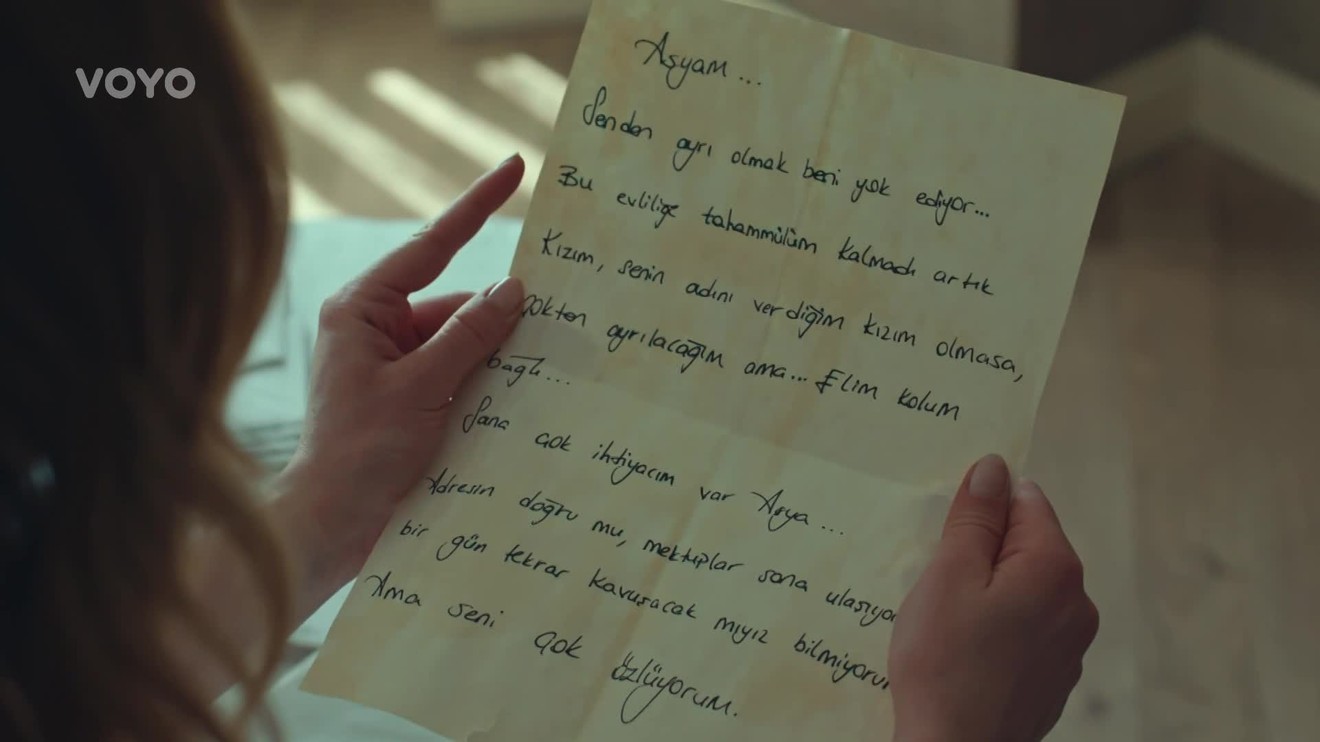 VOYO
Asyam...
Senden ayrı olmak beni yok ediyor...
Bu evliliğe tahammülüm kalmadı artık
Kızım, senin adını verdiğim kızım olmasa,
Çokten ayrılacağım ama... Elim kolum
bağlı...
Sana çok ihtiyacım var Asya...
Adresin doğru mu, mektuplar sana ulaşıyor
bir gün tekrar kavuşacak mıyız bilmiyorum
Ama seni çok özlüyorum.